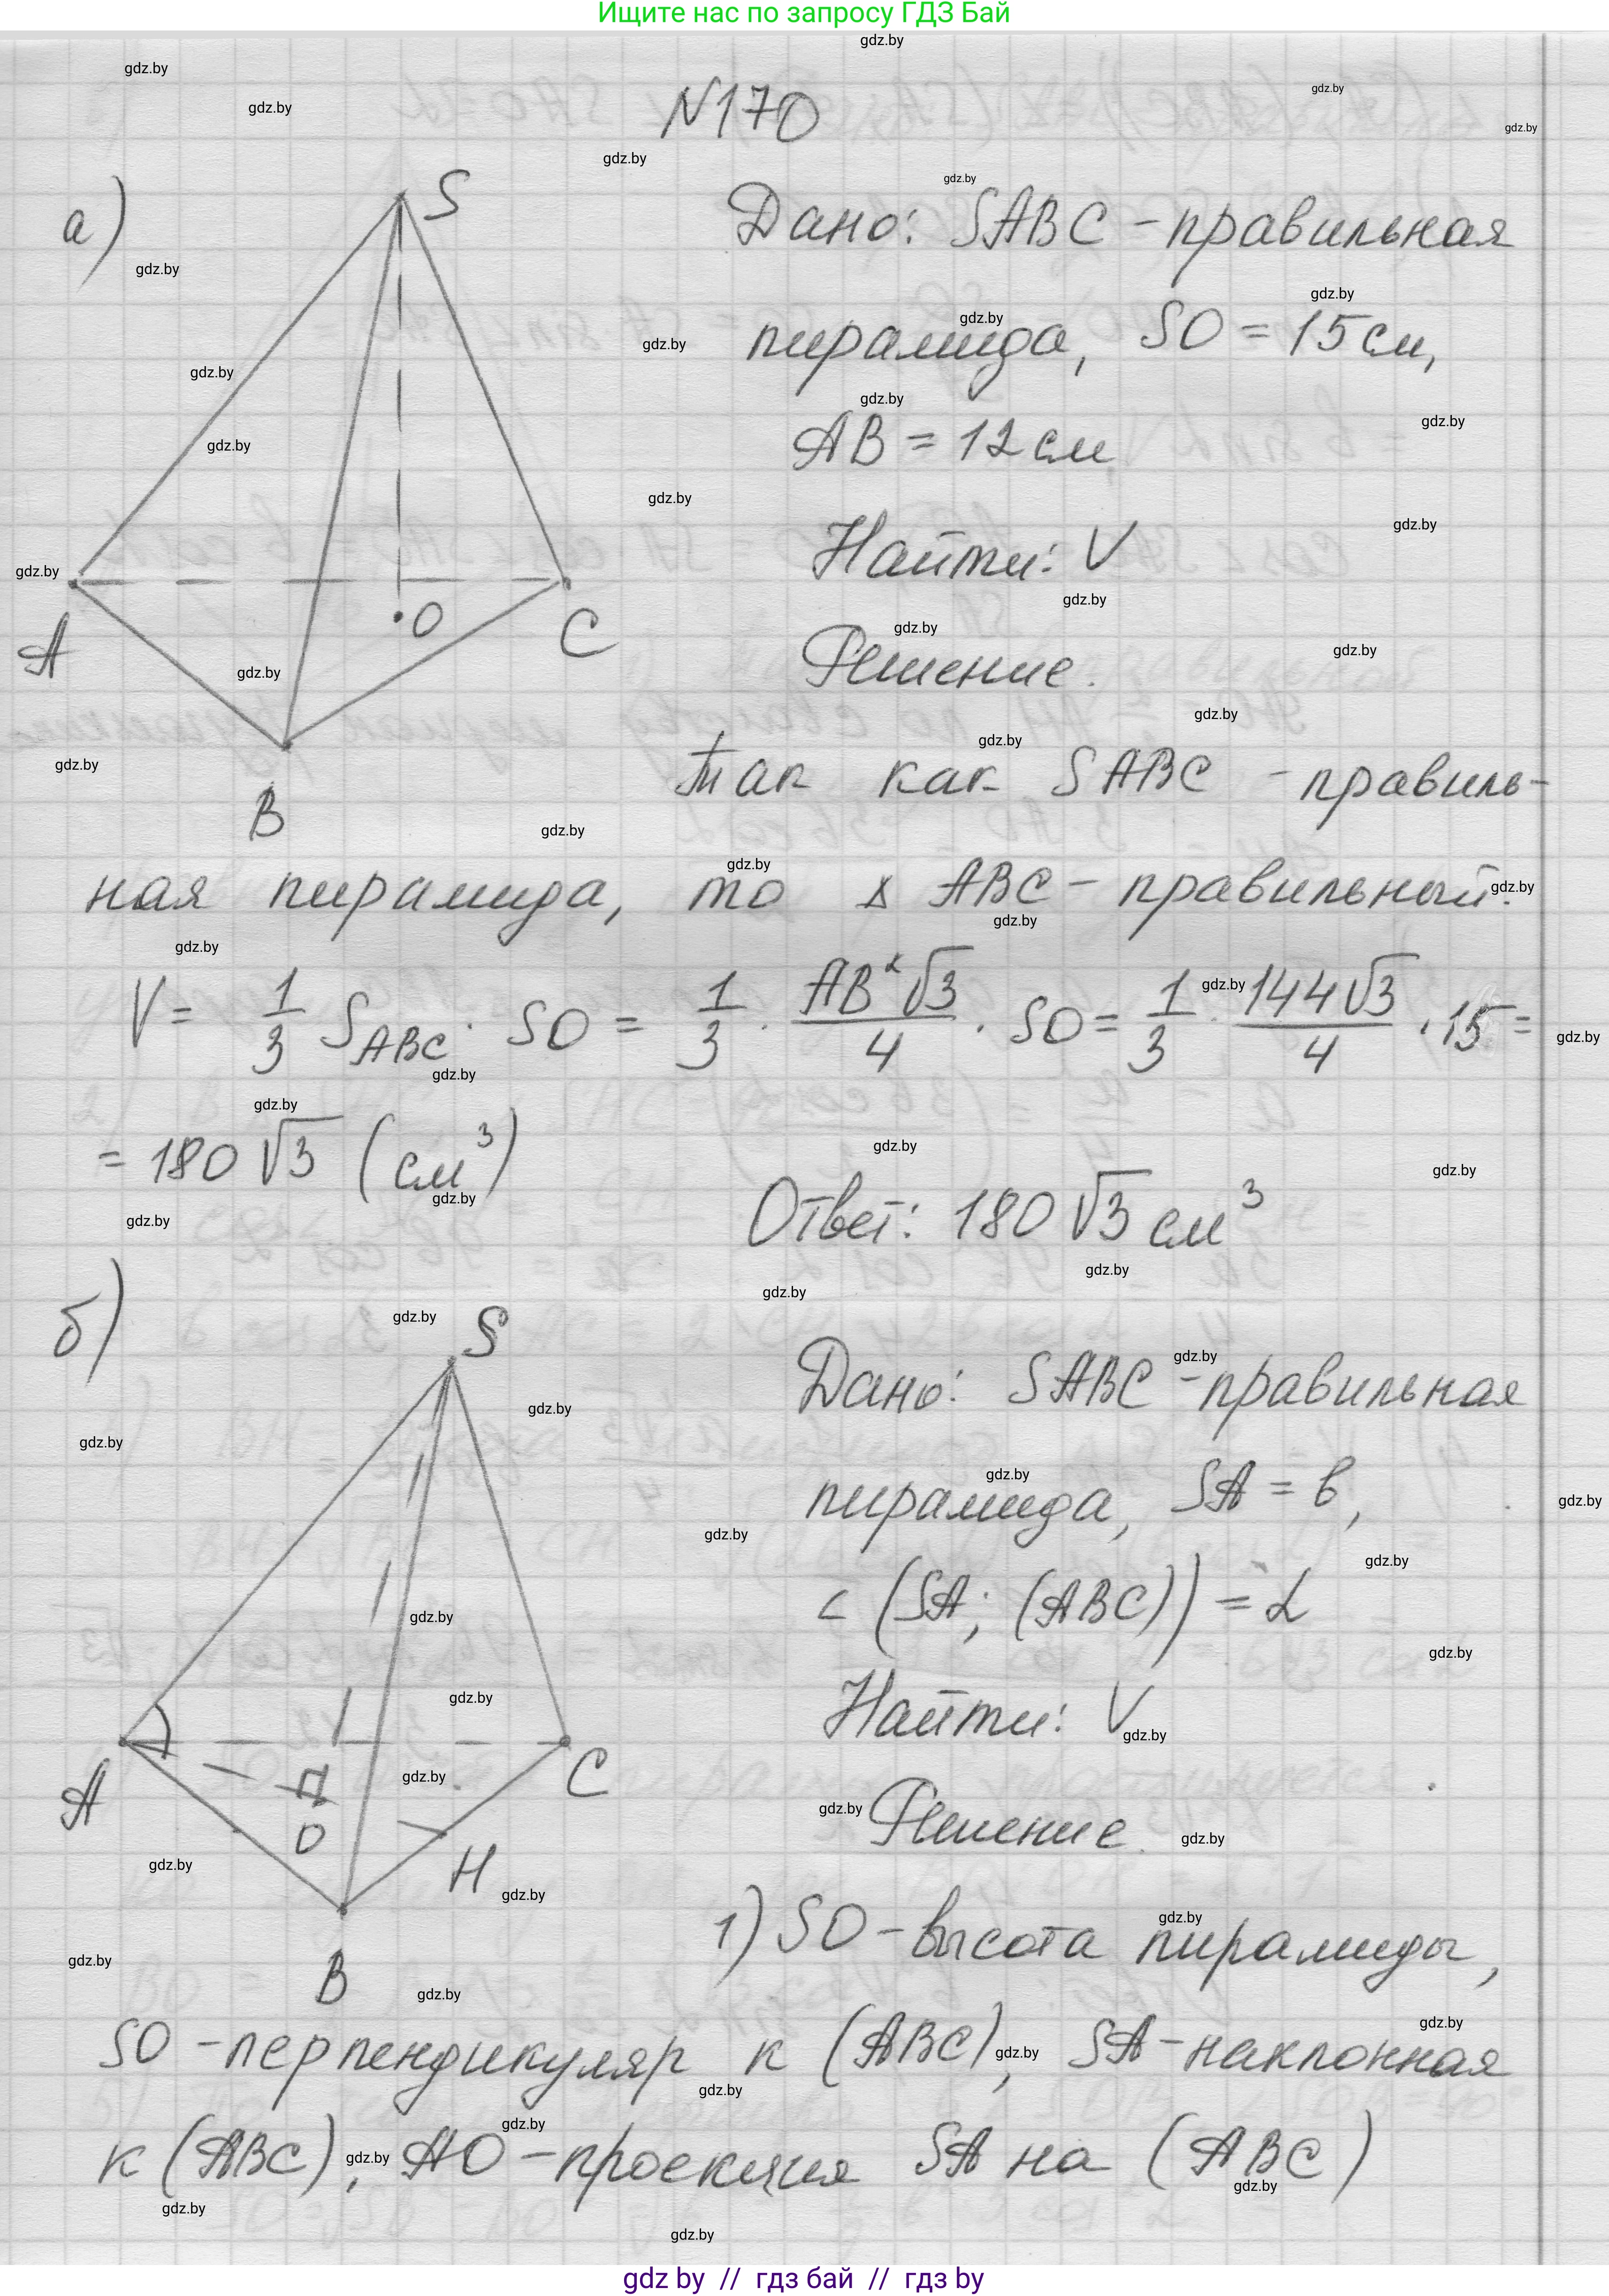 Ищите нас по запросу ГДЗ Бай
N170
а)
S
A
B
C
O
Дано: SABC - правильная
пирамида, SO = 15 см,
AB = 12 см
Найти: V
Решение.
Так как SABC - правиль-
ная пирамида, то △ ABC - правильный.
V = 1/3 S_ABC · SO = 1/3 · AB²√3/4 · SO = 1/3 · 144√3/4 · 15 =
= 180√3 (см³)
Ответ: 180√3 см³
б)
S
A
B
C
O
H
Дано: SABC - правильная
пирамида, SA = b,
∠ (SA; (ABC)) = α
Найти: V
Решение.
1) SO - высота пирамиды,
SO - перпендикуляр к (ABC), SA - наклонная
к (ABC), AO - проекция SA на (ABC)
gdz.by
gdz by // гдз бай // гдз by